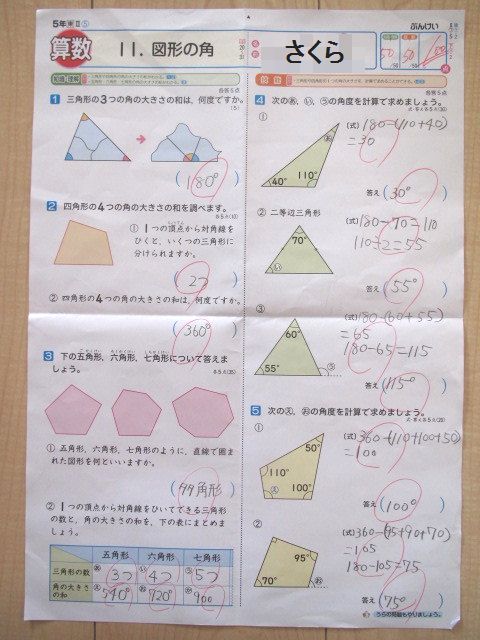 5年
算数
11. 図形の角
ぶんけい
さくら
50
50
100
知識・理解
各答5点
1 三角形の3つの角の大きさの和は、何度ですか。
(180°)
2 四角形の4つの角の大きさの和を調べます。
① 1つの頂点から対角線を
ひくと、いくつの三角形に
分けられますか。
(2つ)
② 四角形の4つの角の大きさの和は、何度ですか。
(360°)
3 下の五角形、六角形、七角形について答えま
しょう。
① 五角形、六角形、七角形のように、直線で囲ま
れた図形を何といいますか。
(多角形)
② 1つの頂点から対角線をひいてできる三角形
の数と、角の大きさの和を、下の表にまとめま
しょう。
五角形 六角形 七角形
三角形の数 3つ 4つ 5つ
角の大きさの和 540° 720° 900
各答5点
4 次のあ、い、うの角度を計算で求めましょう。
①
あ
40° 110°
(式) 180-(110+40)
=30
答え (30°)
② 二等辺三角形
70°
い
(式) 180-70=110
110÷2=55
答え (55°)
③
60°
55°
う
(式) 180-(60+55)
=65
180-65=115
答え (115°)
5 次のえ、おの角度を計算で求めましょう。
①
50°
110°
え
100°
(式) 360-(110+100+50)
=100
答え (100°)
②
95°
70°
お
(式) 360-(95+90+70)
=105
180-105=75
答え (75°)
うらの問題もやりましょう。